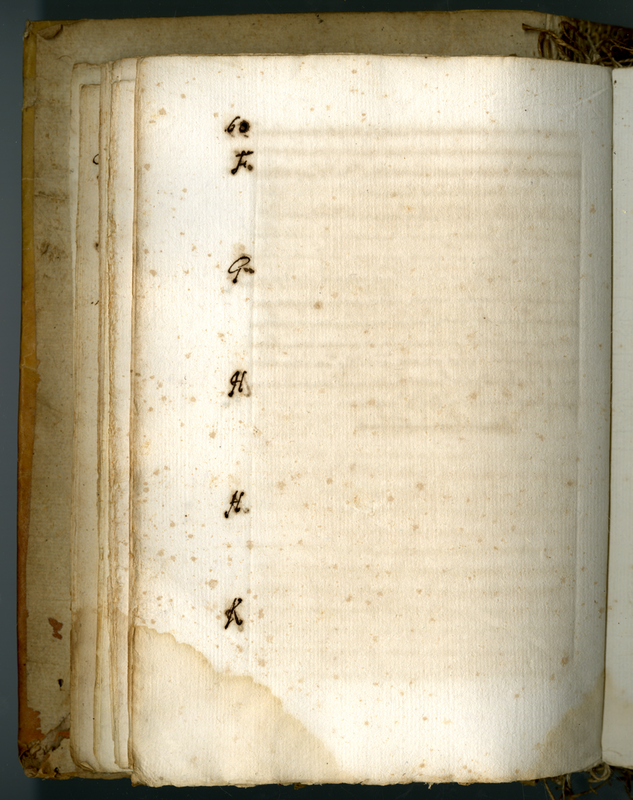 60
F.
G
H
H.
K